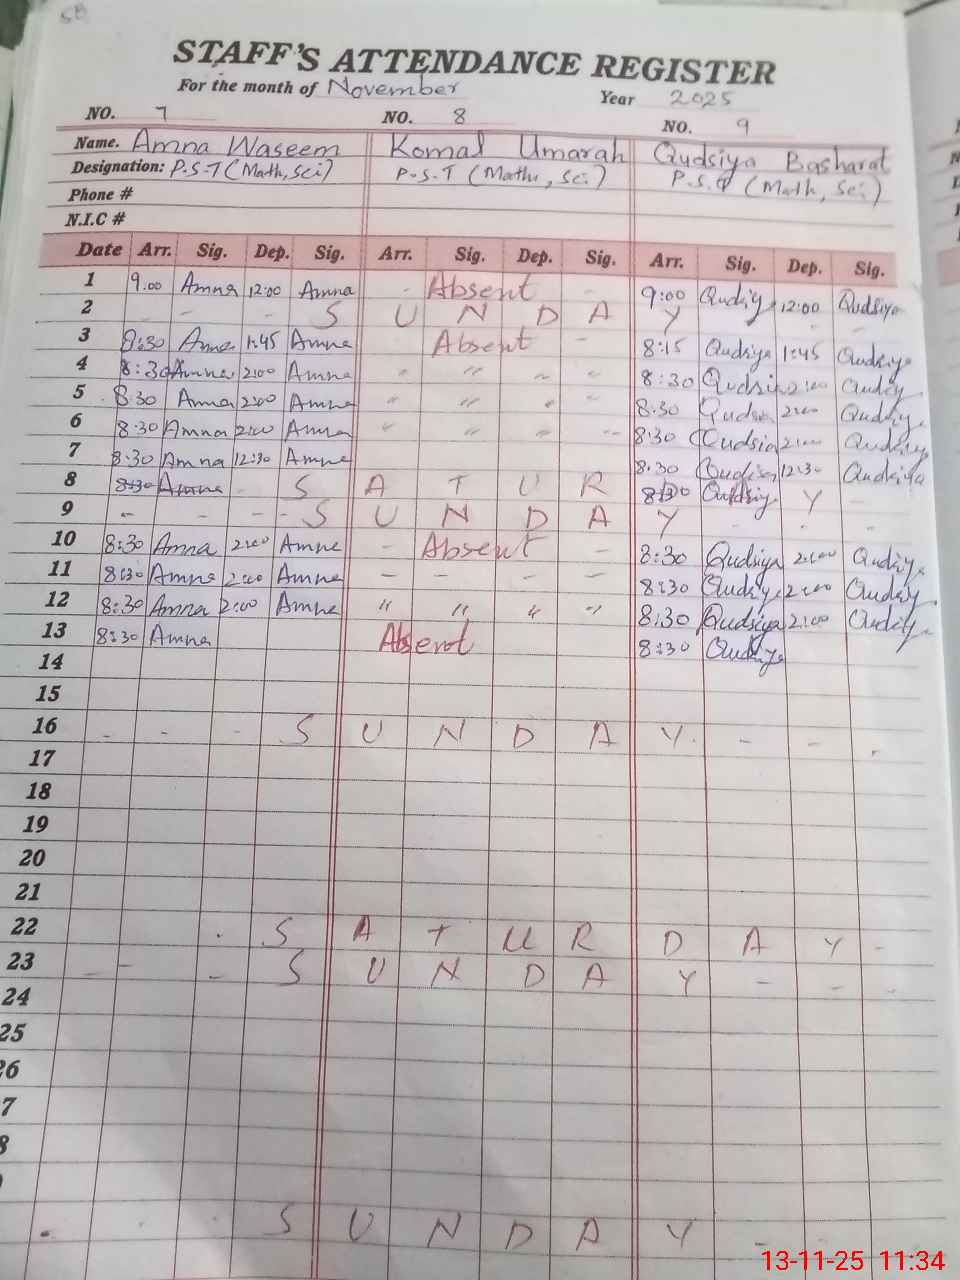 58
STAFF'S ATTENDANCE REGISTER
For the month of November Year 2025
NO. 7 NO. 8 NO. 9
Name. Amna Waseem Komal Umarah Qudsiya Basharat
Designation: P.S.T (Math, Sci) P.S.T (Math, Sci) P.S.T (Math, Sci)
Phone #
N.I.C #
Date Arr. Sig. Dep. Sig. Arr. Sig. Dep. Sig. Arr. Sig. Dep. Sig.
1 9.00 Amna 12:00 Amna - Absent - 9:00 Qudsiya 12:00 Qudsiya
2 - - - S U N D A Y - -
3 8:30 Amna 1:45 Amna Absent - 8:15 Qudsiya 1:45 Qudsiya
4 8:30 Amna 2:00 Amna " " " " 8:30 Qudsiya 2:00 Qudsiya
5 8:30 Amna 2:00 Amna " " " " 8:30 Qudsiya 2:00 Qudsiya
6 8:30 Amna 2:00 Amna " " " " 8:30 Qudsiya 2:00 Qudsiya
7 8:30 Amna 12:30 Amna 8:30 Qudsiya 12:30 Qudsiya
8 8:30 Amna - S A T U R 8:30 Qudsiya Y -
9 - - - - S U N D A Y - - -
10 8:30 Amna 2:00 Amna - Absent - 8:30 Qudsiya 2:00 Qudsiya
11 8:30 Amna 2:00 Amna - - - - 8:30 Qudsiya 2:00 Qudsiya
12 8:30 Amna 2:00 Amna " " " " 8:30 Qudsiya 2:00 Qudsiya
13 8:30 Amna Absent 8:30 Qudsiya
14
15
16 - - - S U N D A Y - - -
17
18
19
20
21
22 S A T U R D A Y -
23 - - - S U N D A Y - - -
24
25
26
7
8
S U N D A Y - -
13-11-25 11:34